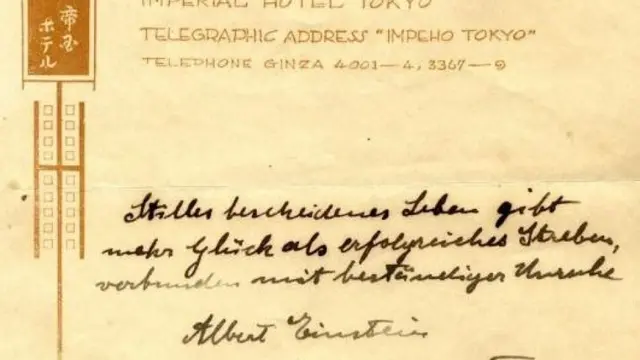 帝国
ホテル
IMPERIAL HOTEL TOKYO
TELEGRAPHIC ADDRESS "IMPEHO TOKYO"
TELEPHONE GINZA 4001—4, 3367—9
Stilles bescheidenes Leben gibt
mehr Glück als erfolgreiches Streben,
verbunden mit beständiger Unruhe
Albert Einstein